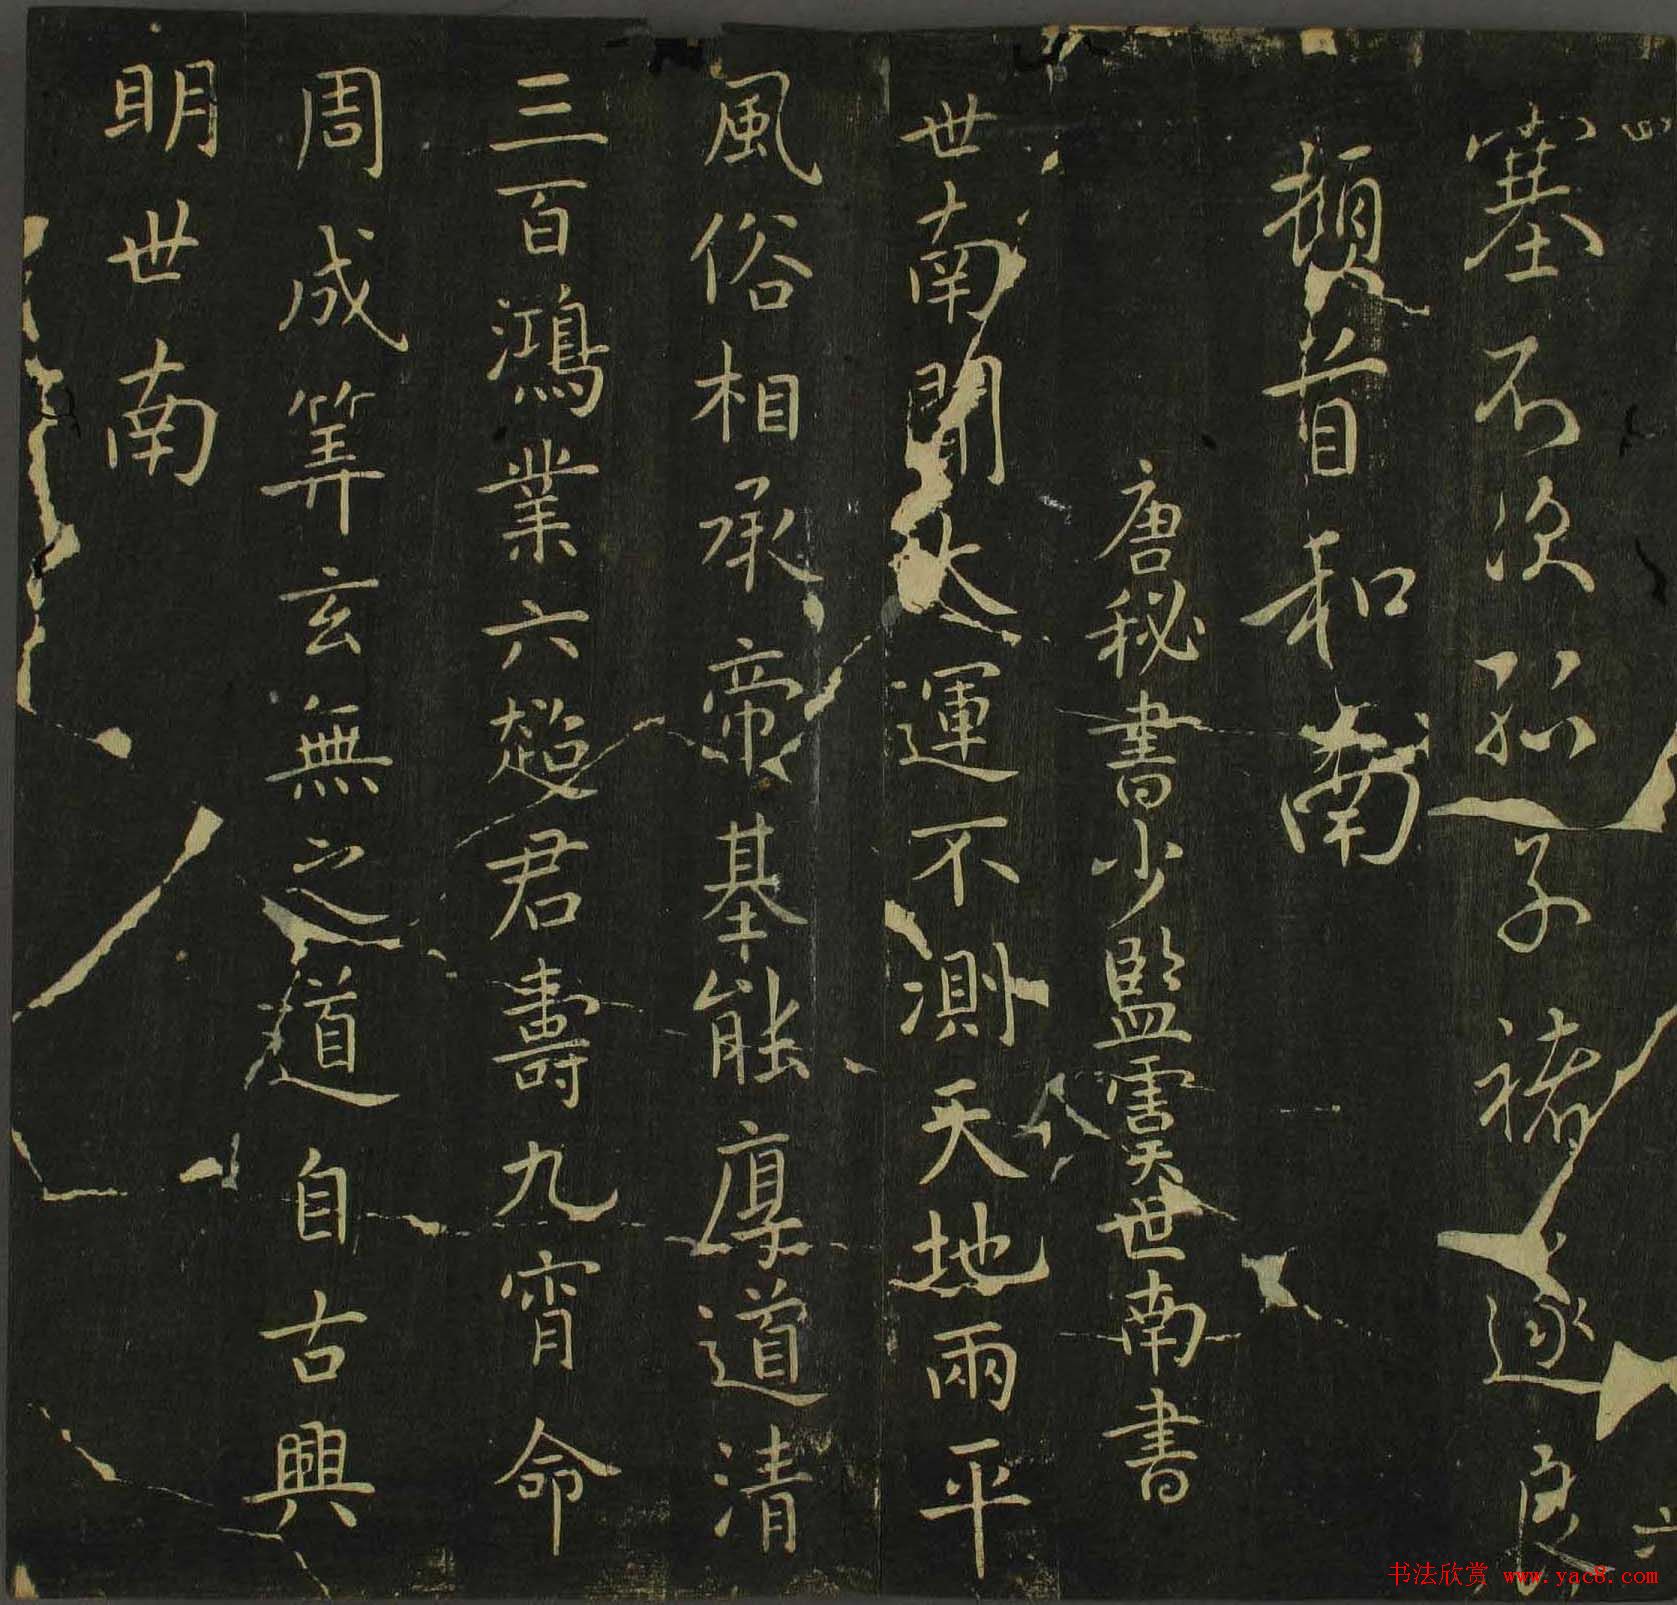 塞不次孤子褚遂良
頓首和南
唐秘書少監虞世南書
世南聞大運不測天地兩平
風俗相承帝基能厚道清
三百鴻業六超君壽九霄命
周成筭玄無之道自古興
明世南
书法欣赏 www.yac8.com